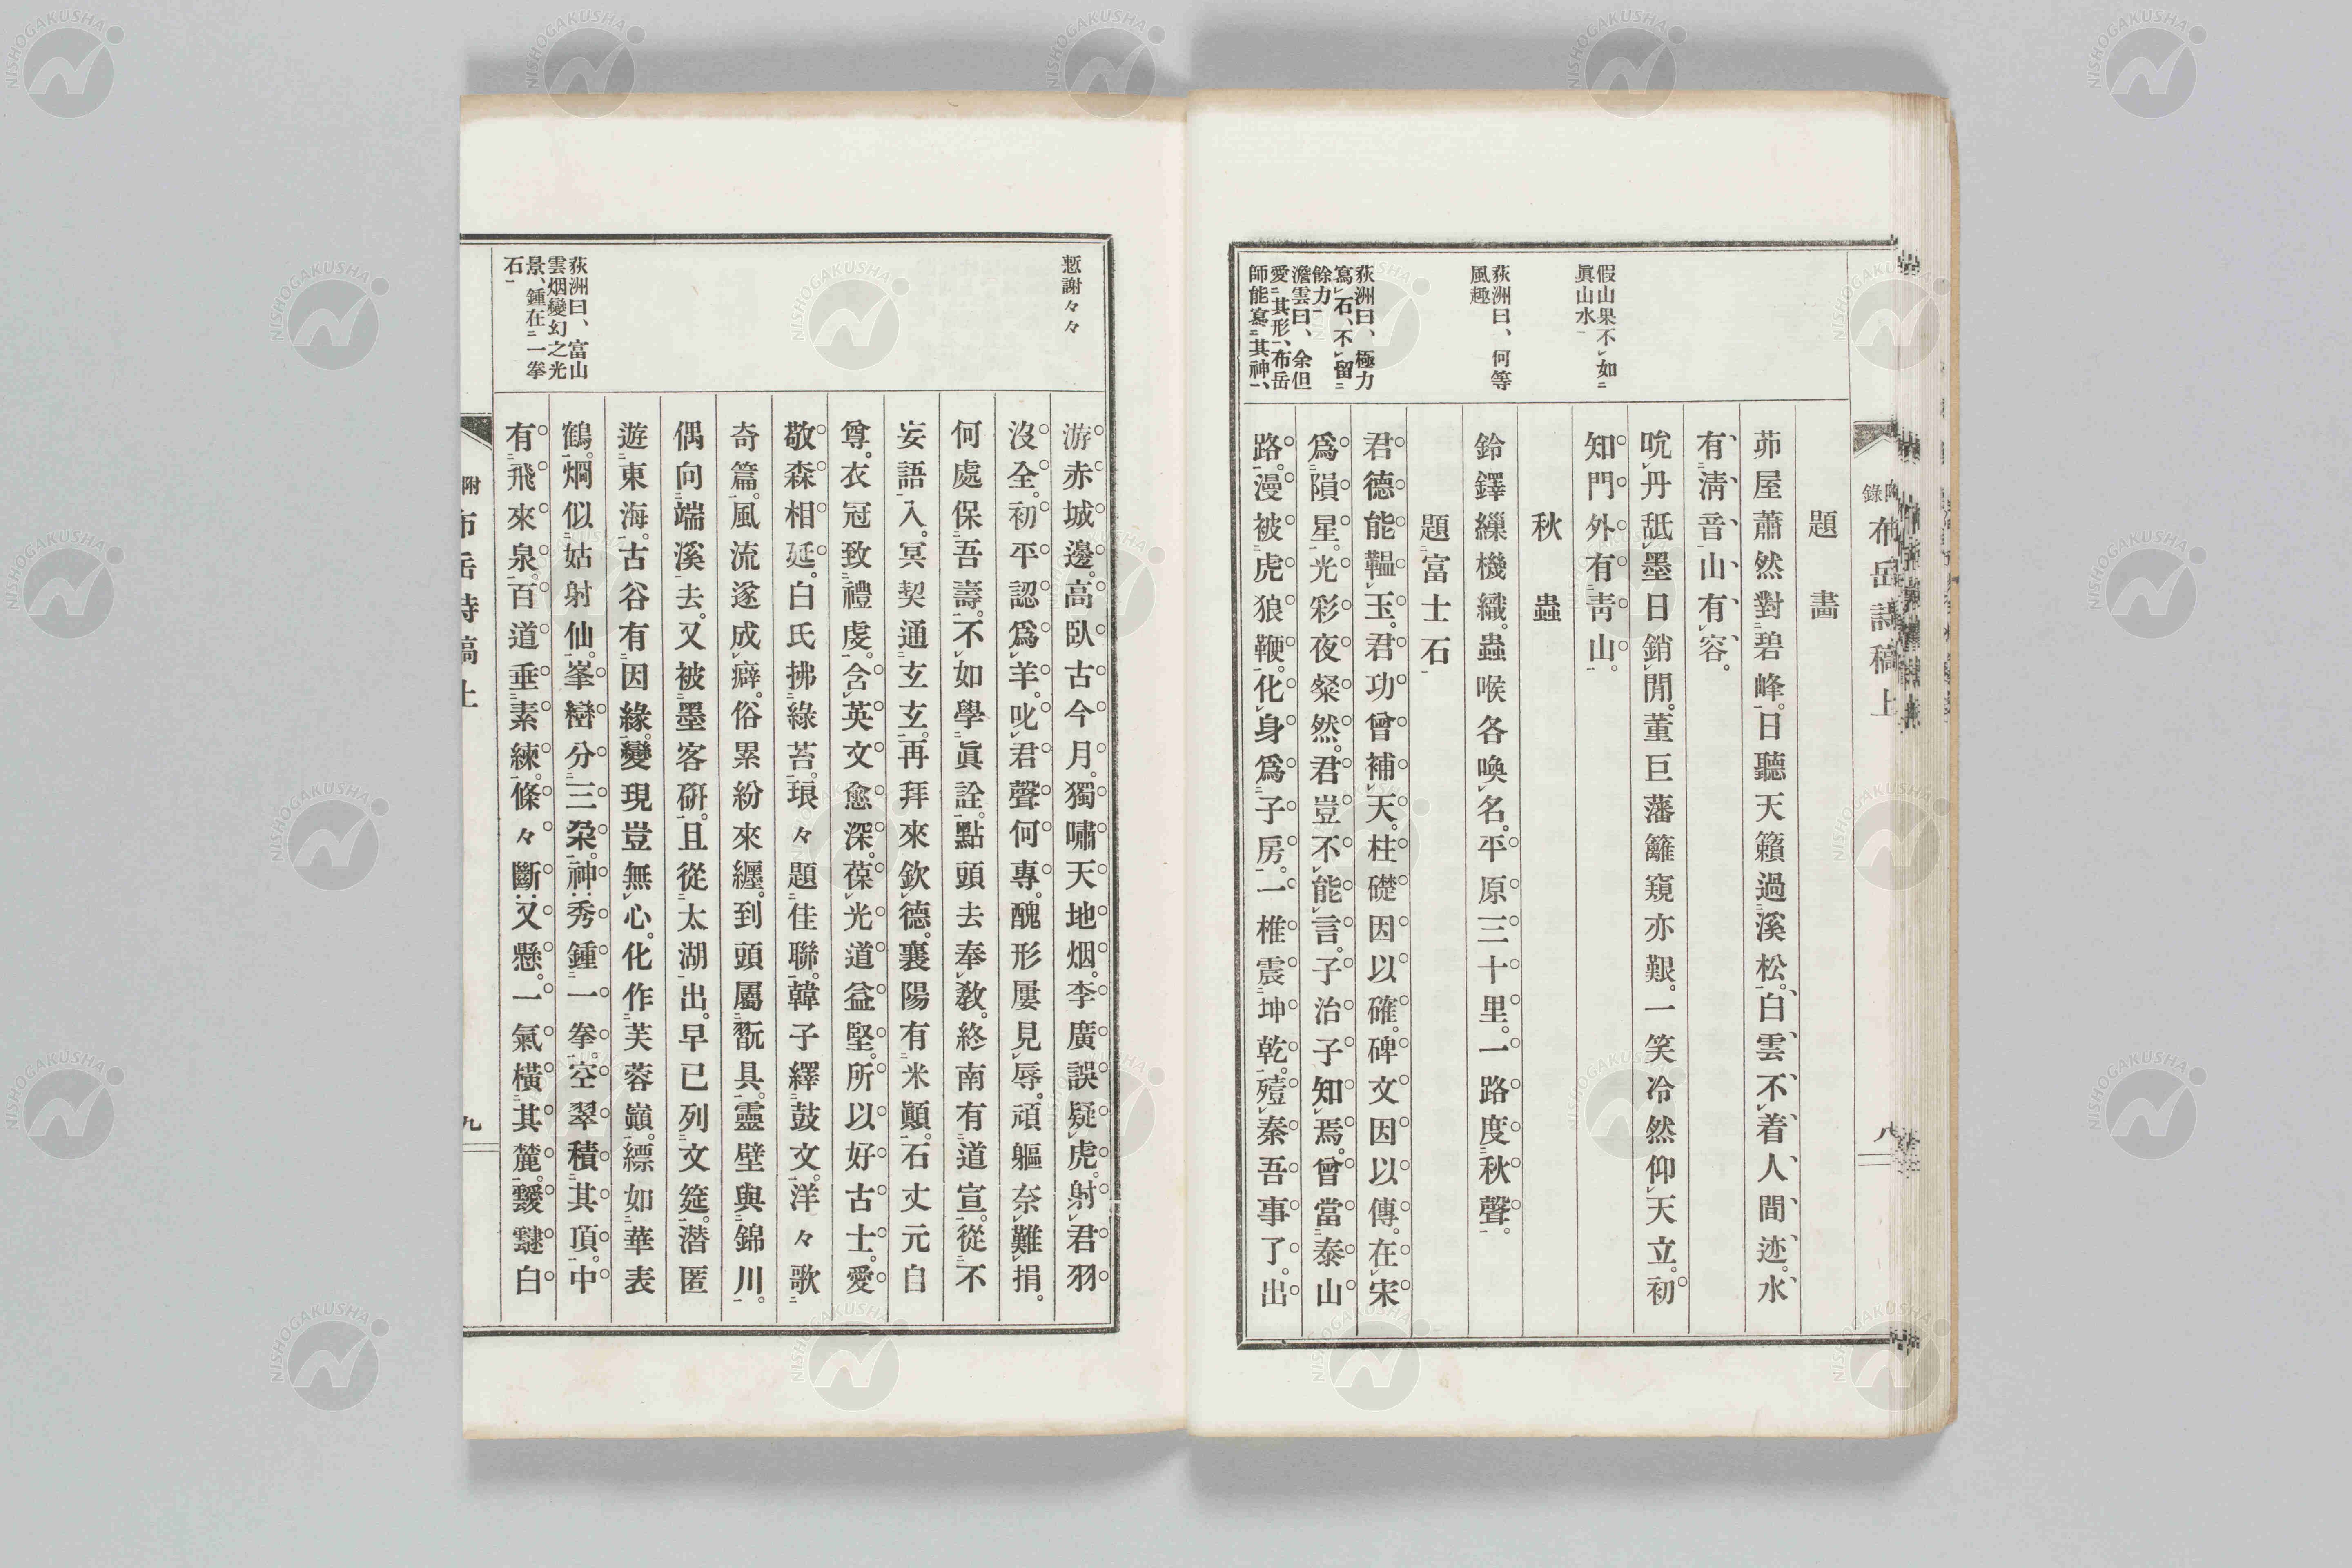 附錄
布岳詩稿上
八
題畵
茆屋蕭然對碧峰。日聽天籟過溪松。白雲不着人間迹。水
有淸音山有容。
吮丹舐墨日銷閒。董巨藩籬窺亦艱。一笑冷然仰天立。初
知門外有靑山。
秋蟲
鈴鐸繅機織。蟲喉各喚名。平原三十里。一路度秋聲。
題富士石
君德能韞玉。君功曾補天。柱礎因以確。碑文因以傳。在宋
爲隕星。光彩夜粲然。君豈不能言。子治子知焉。曾當泰山
路。漫被虎狼鞭。化身爲子房。一椎震坤乾。殪秦吾事了。出
假山果不如
眞山水
荻洲曰、何等
風趣
荻洲曰、極力
寫石、不留
餘力
澹雲曰、余但
愛其形、布岳
師能寫其神、
慙謝々々
游赤城邊。高臥古今月。獨嘯天地烟。李廣誤疑虎。射君羽
沒全。初平認爲羊。叱君聲何專。醜形屢見辱。頑軀奈難捐。
何處保吾壽。不如學眞詮。點頭去奉敎。終南有道宣。從不
妄語入。冥契通玄玄。再拜來欽德。襄陽有米顚。石丈元自
尊。衣冠致禮虔。含英文愈深。葆光道益堅。所以好古士。愛
敬森相延。白氏拂綠苔。琅々題佳聯。韓子繹鼓文。洋々歌
奇篇。風流遂成癖。俗累紛來纒。到頭屬翫具。靈壁與錦川。
偶向端溪去。又被墨客硏。且從太湖出。早已列文筵。潜匿
遊東海。古谷有因緣。變現豈無心。化作芙蓉巓。縹如華表
鶴。烱似姑射仙。峯巒分三朶。神秀鍾一拳。空翠積其頂。中
有飛來泉。百道垂素練。條々斷又懸。一氣橫其麓。靉靆白
荻洲曰、富山
雲烟變幻之光
景、鍾在一拳
石
附
布岳詩稿上
九
NISHOGAKUSHA